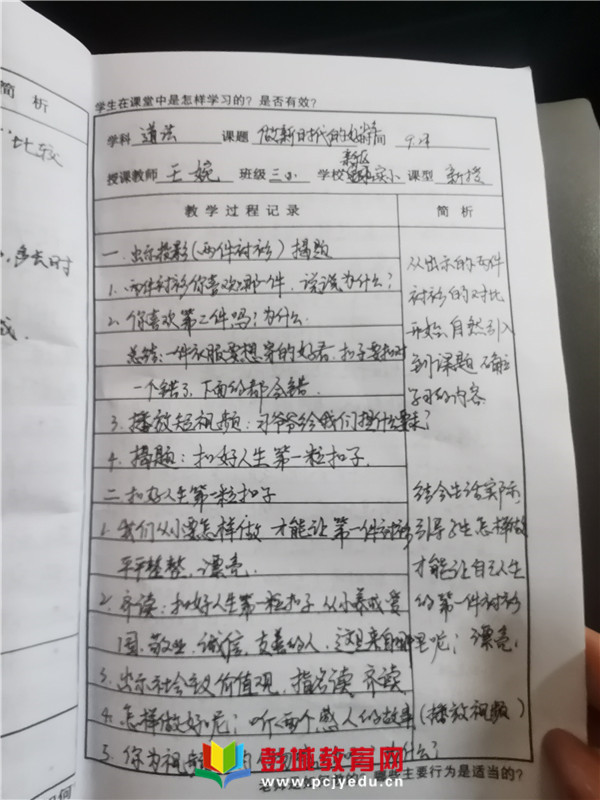 简 析
比较
学生在课堂中是怎样学习的？是否有效？
学科 道法 课题 做新时代的好 9.4
授课教师 王婉 班级 三 学校 新区 实小 课型 新授
教学过程记录 简 析
一.出示投影(两件衬衫)揭题
1.两件衬衫你喜欢哪一件，说说为什么？
2.你喜欢第二件吗？为什么.
总结:一件衣服要想穿的好看，扣子要扣对
一个错了，下面的都会错.
3.播放短视频:习爷爷给我们提什么要求？
4.揭题:扣好人生第一粒扣子.
二.扣好人生第一粒扣子
1.我们从小要怎样做 才能让第一件衬衫
平平整整，漂亮.
2.齐读:扣好人生第一粒扣子 从小养成爱
国、敬业、诚信、友善的人，这里来自哪
3.出示社会主义价值观，指名读 齐读
4.怎样做好呢；听两个感人的故事(播放视频)
5.你为视 什么？
从出示的两件
衬衫的对比
开始，自然引入
到课题，确立
学习的内容
结合生活实际
引导学生怎样做
才能让自己人生
的第一件衬衫
里呢；漂亮.
彭城教育网
www.pcjyedu.cn
哪些主要行为是适当的？